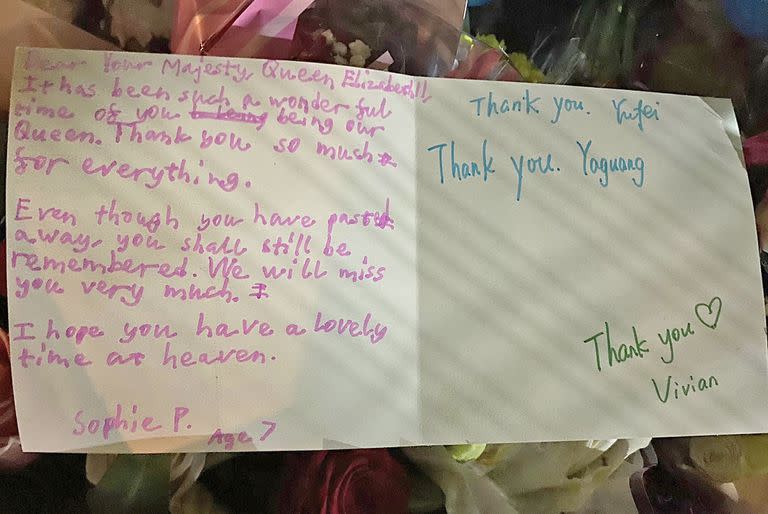 Dear Your Majesty, Queen Elizabeth II
It has been such a wonderful
time of you being our
Queen. Thank you so much
for everything.
Even though you have past
away, you shall still be
remembered. We will miss
you very much.
I hope you have a lovely
time at heaven.
Sophie P. Age 7
Thank you. Yufei
Thank you. Yaguang
Thank you ♡
Vivian